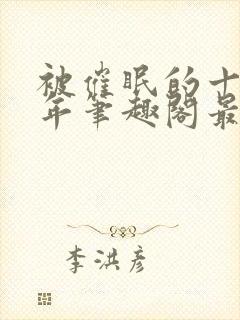 被催眠的十
年笔趣阁最
李洪彦